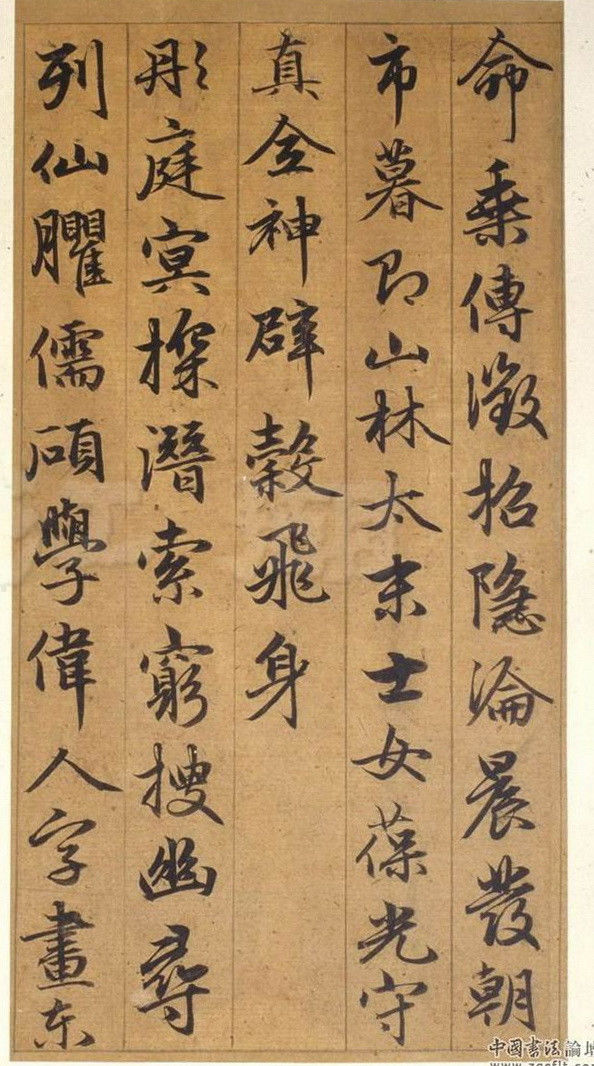 命乘傳徵招隱淪晨發朝
市暮即山林太末士女葆光守
真全神辟穀飛身
彤庭冥探潛索窮搜幽尋
列仙臞儒碩學偉人字畫东
中國书法論壇